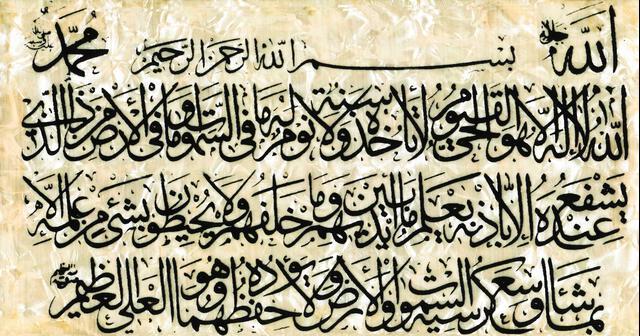 الله جل جلاله بسم الله الرحمن الرحيم محمد
الله لا إله إلا هو الحي القيوم لا تأخذه سنة ولا نوم له ما في السموات وما في الأرض من ذا الذي
يشفع عنده إلا بإذنه يعلم ما بين أيديهم وما خلفهم ولا يحيطون بشيء من علمه إلا
بما شاء وسع كرسيه السموات والأرض ولا يؤده حفظهما وهو العلي العظيم